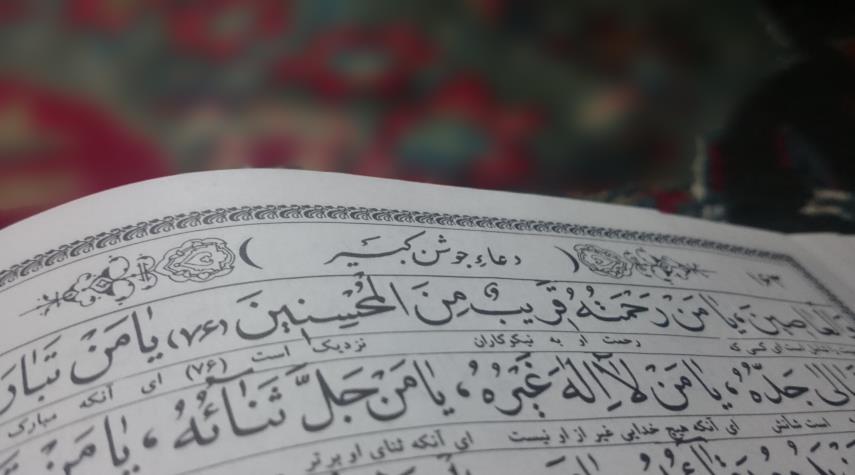 ۱۶۳ ( دعاء جوشن کبیر )
یٰا مَنْ رَحْمَتُهُ قَرِیبٌ مِنَ الْمُحْسِنِینَ (۷۶) یٰا مَنْ
رحمت او به نیکوکاران نزدیک است (۷۶) ای آنکه مبارک
جَدُّهُ، یٰا مَنْ لٰا اِلٰهَ غَیْرُهُ، یٰا مَنْ جَلَّ ثَنٰائُهُ، یٰا مَنْ
است شأنش ای آنکه هیچ خدایی غیر از او نیست ای آنکه ثنای او برتر